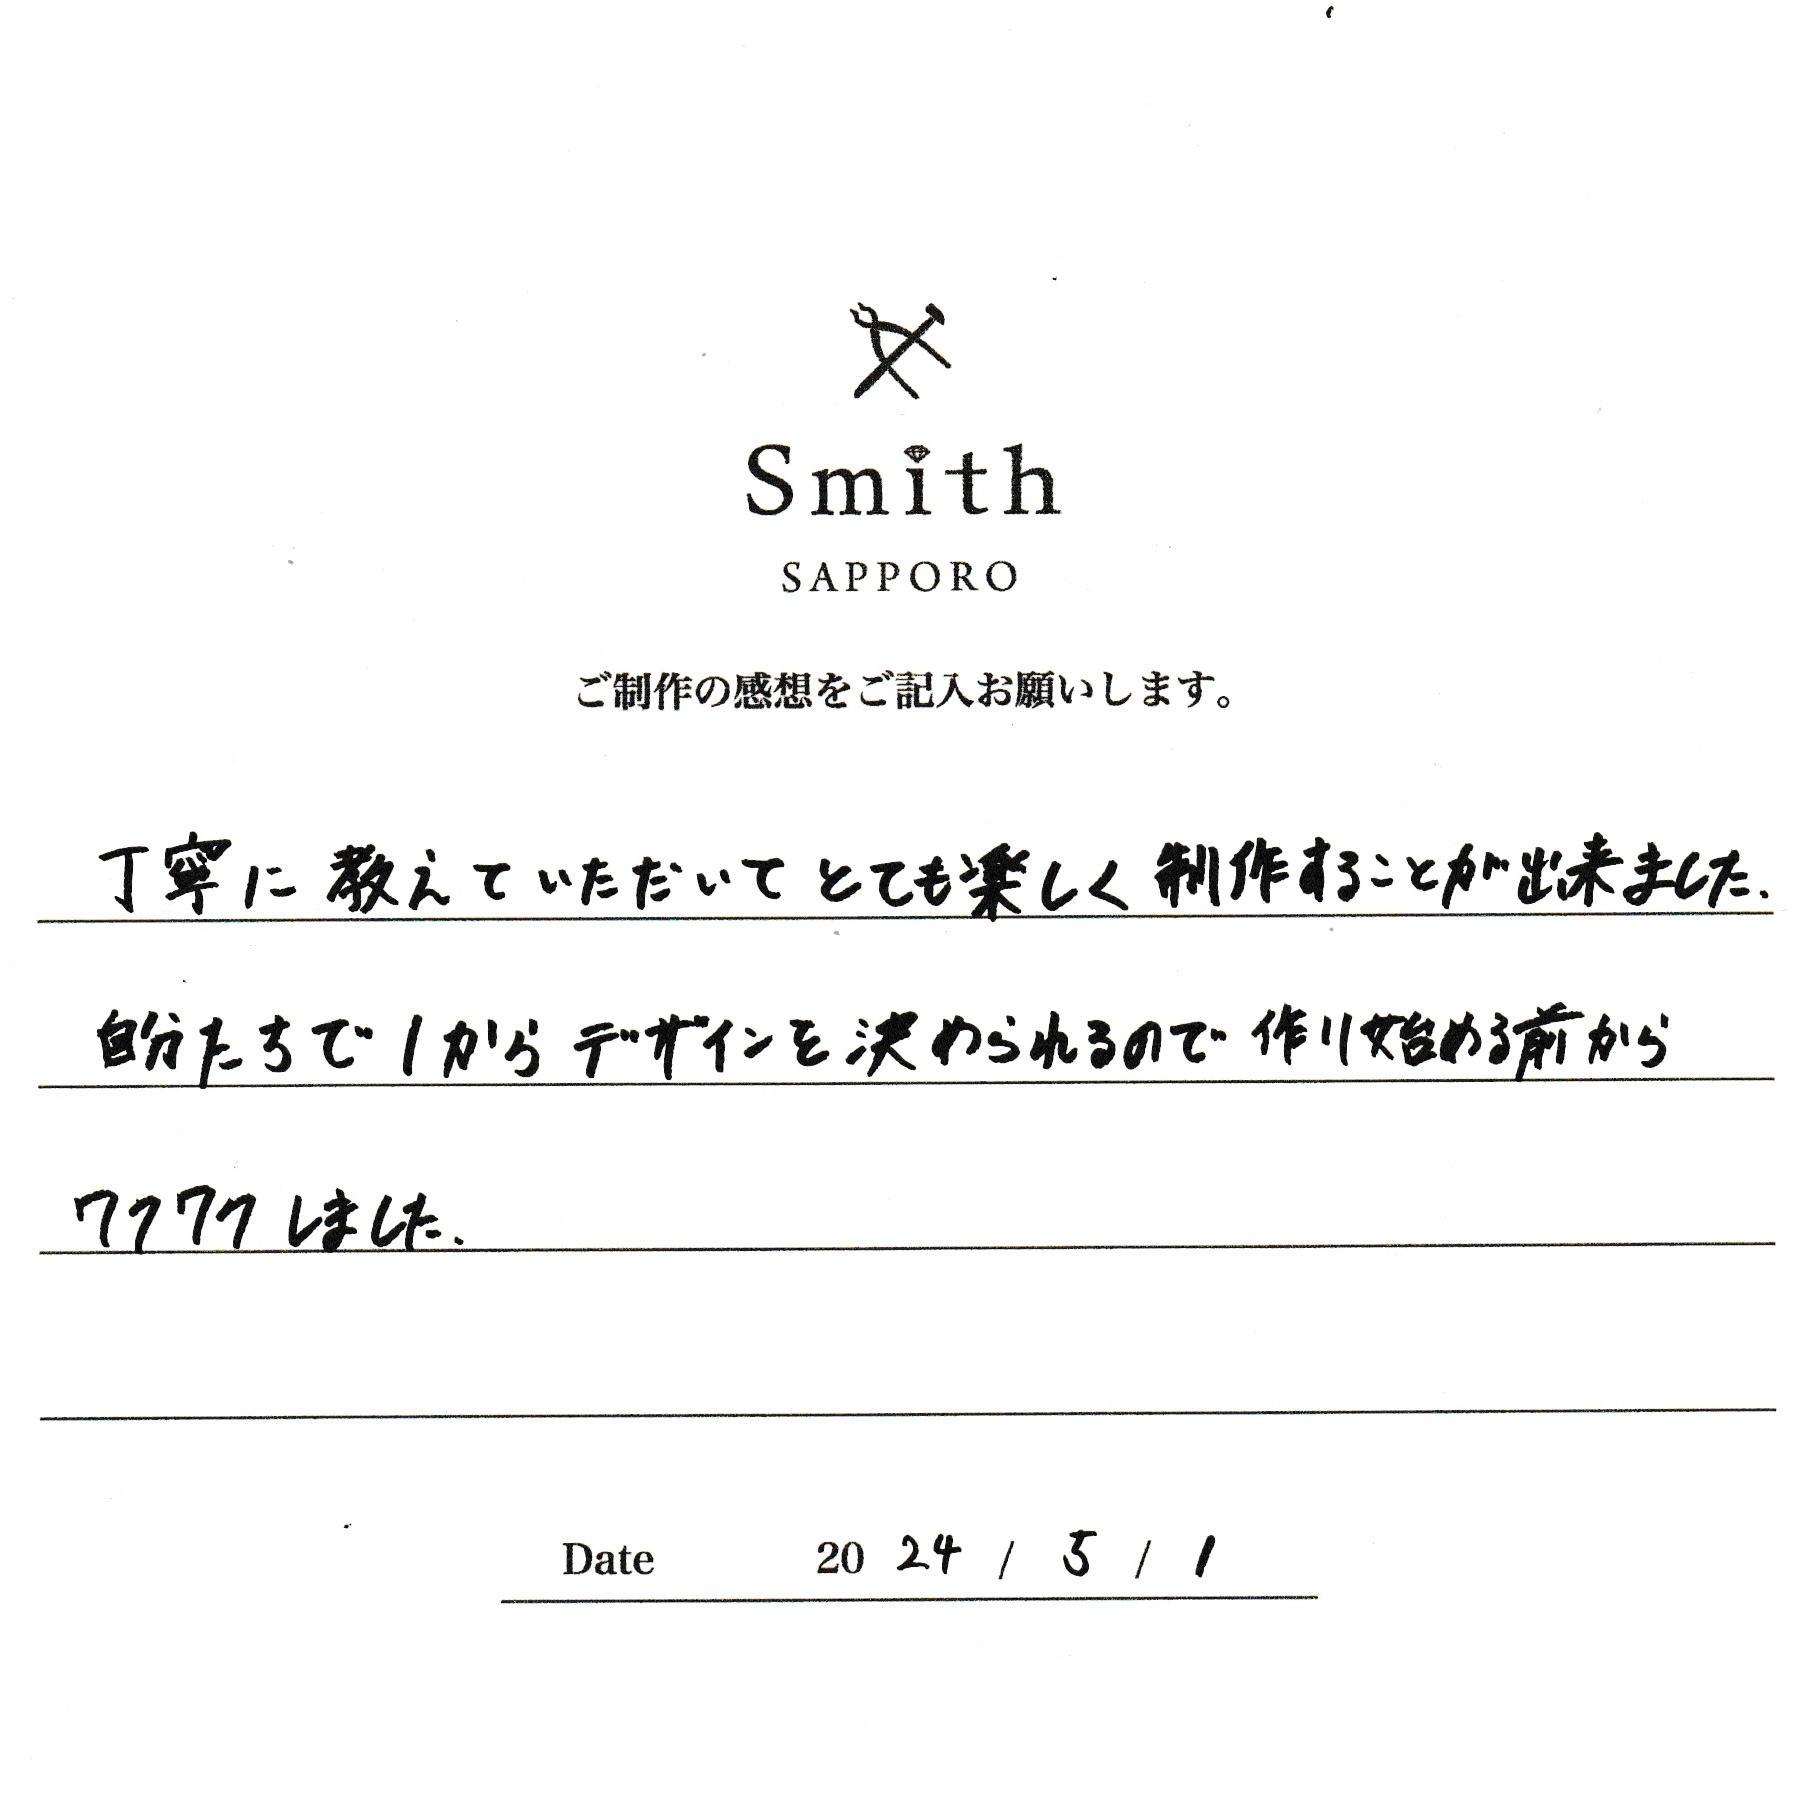 Smith
SAPPORO
ご制作の感想をご記入お願いします。
丁寧に教えていただいてとても楽しく制作することが出来ました.
自分たちで1からデザインを決められるので作り始める前から
ワクワクしました.
Date 20 24 / 5 / 1